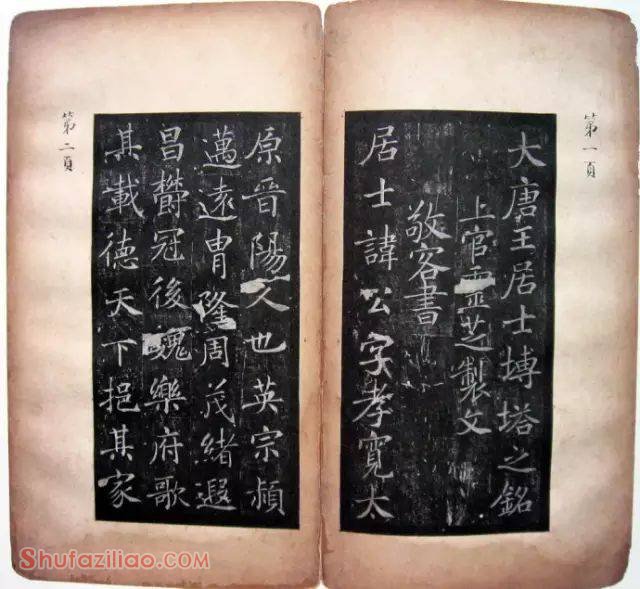 第一頁
大唐王居士塼塔之銘
上官靈芝製文
敬客書
居士諱公字孝寬太
原晉陽人也英宗頴
邁遠冑隆周茂緒遐
昌欝冠後魏樂府歌
其載德天下挹其家
第二頁
Shufaziliao.com